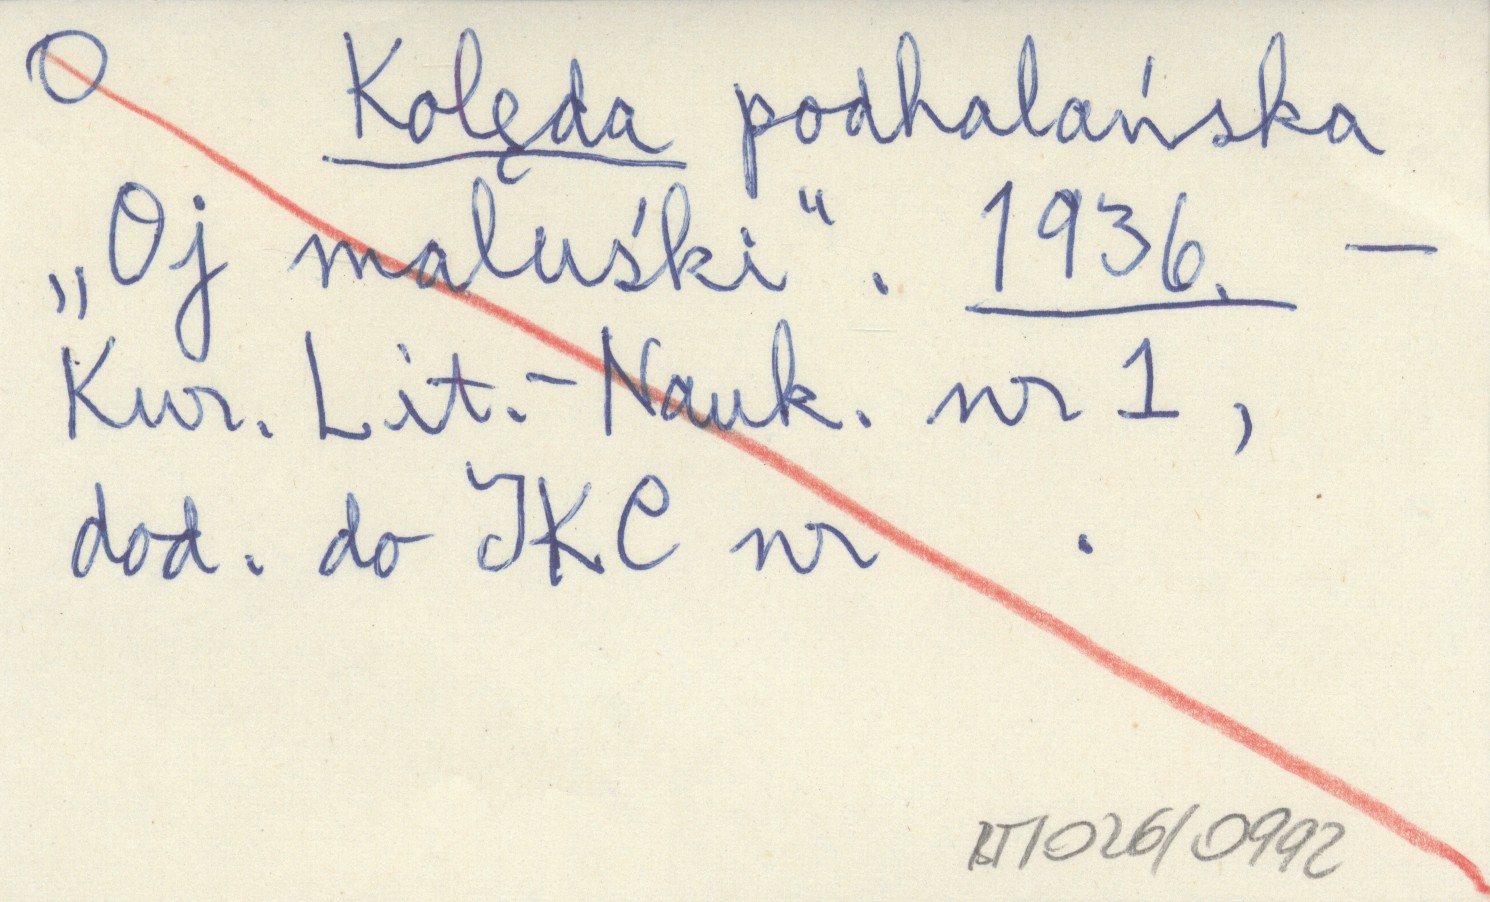 O Kolęda podhalańska
„Oj maluśki“. 1936. —
Kur. Lit.-Nauk. nr 1,
dod. do IKC nr .
026/0992